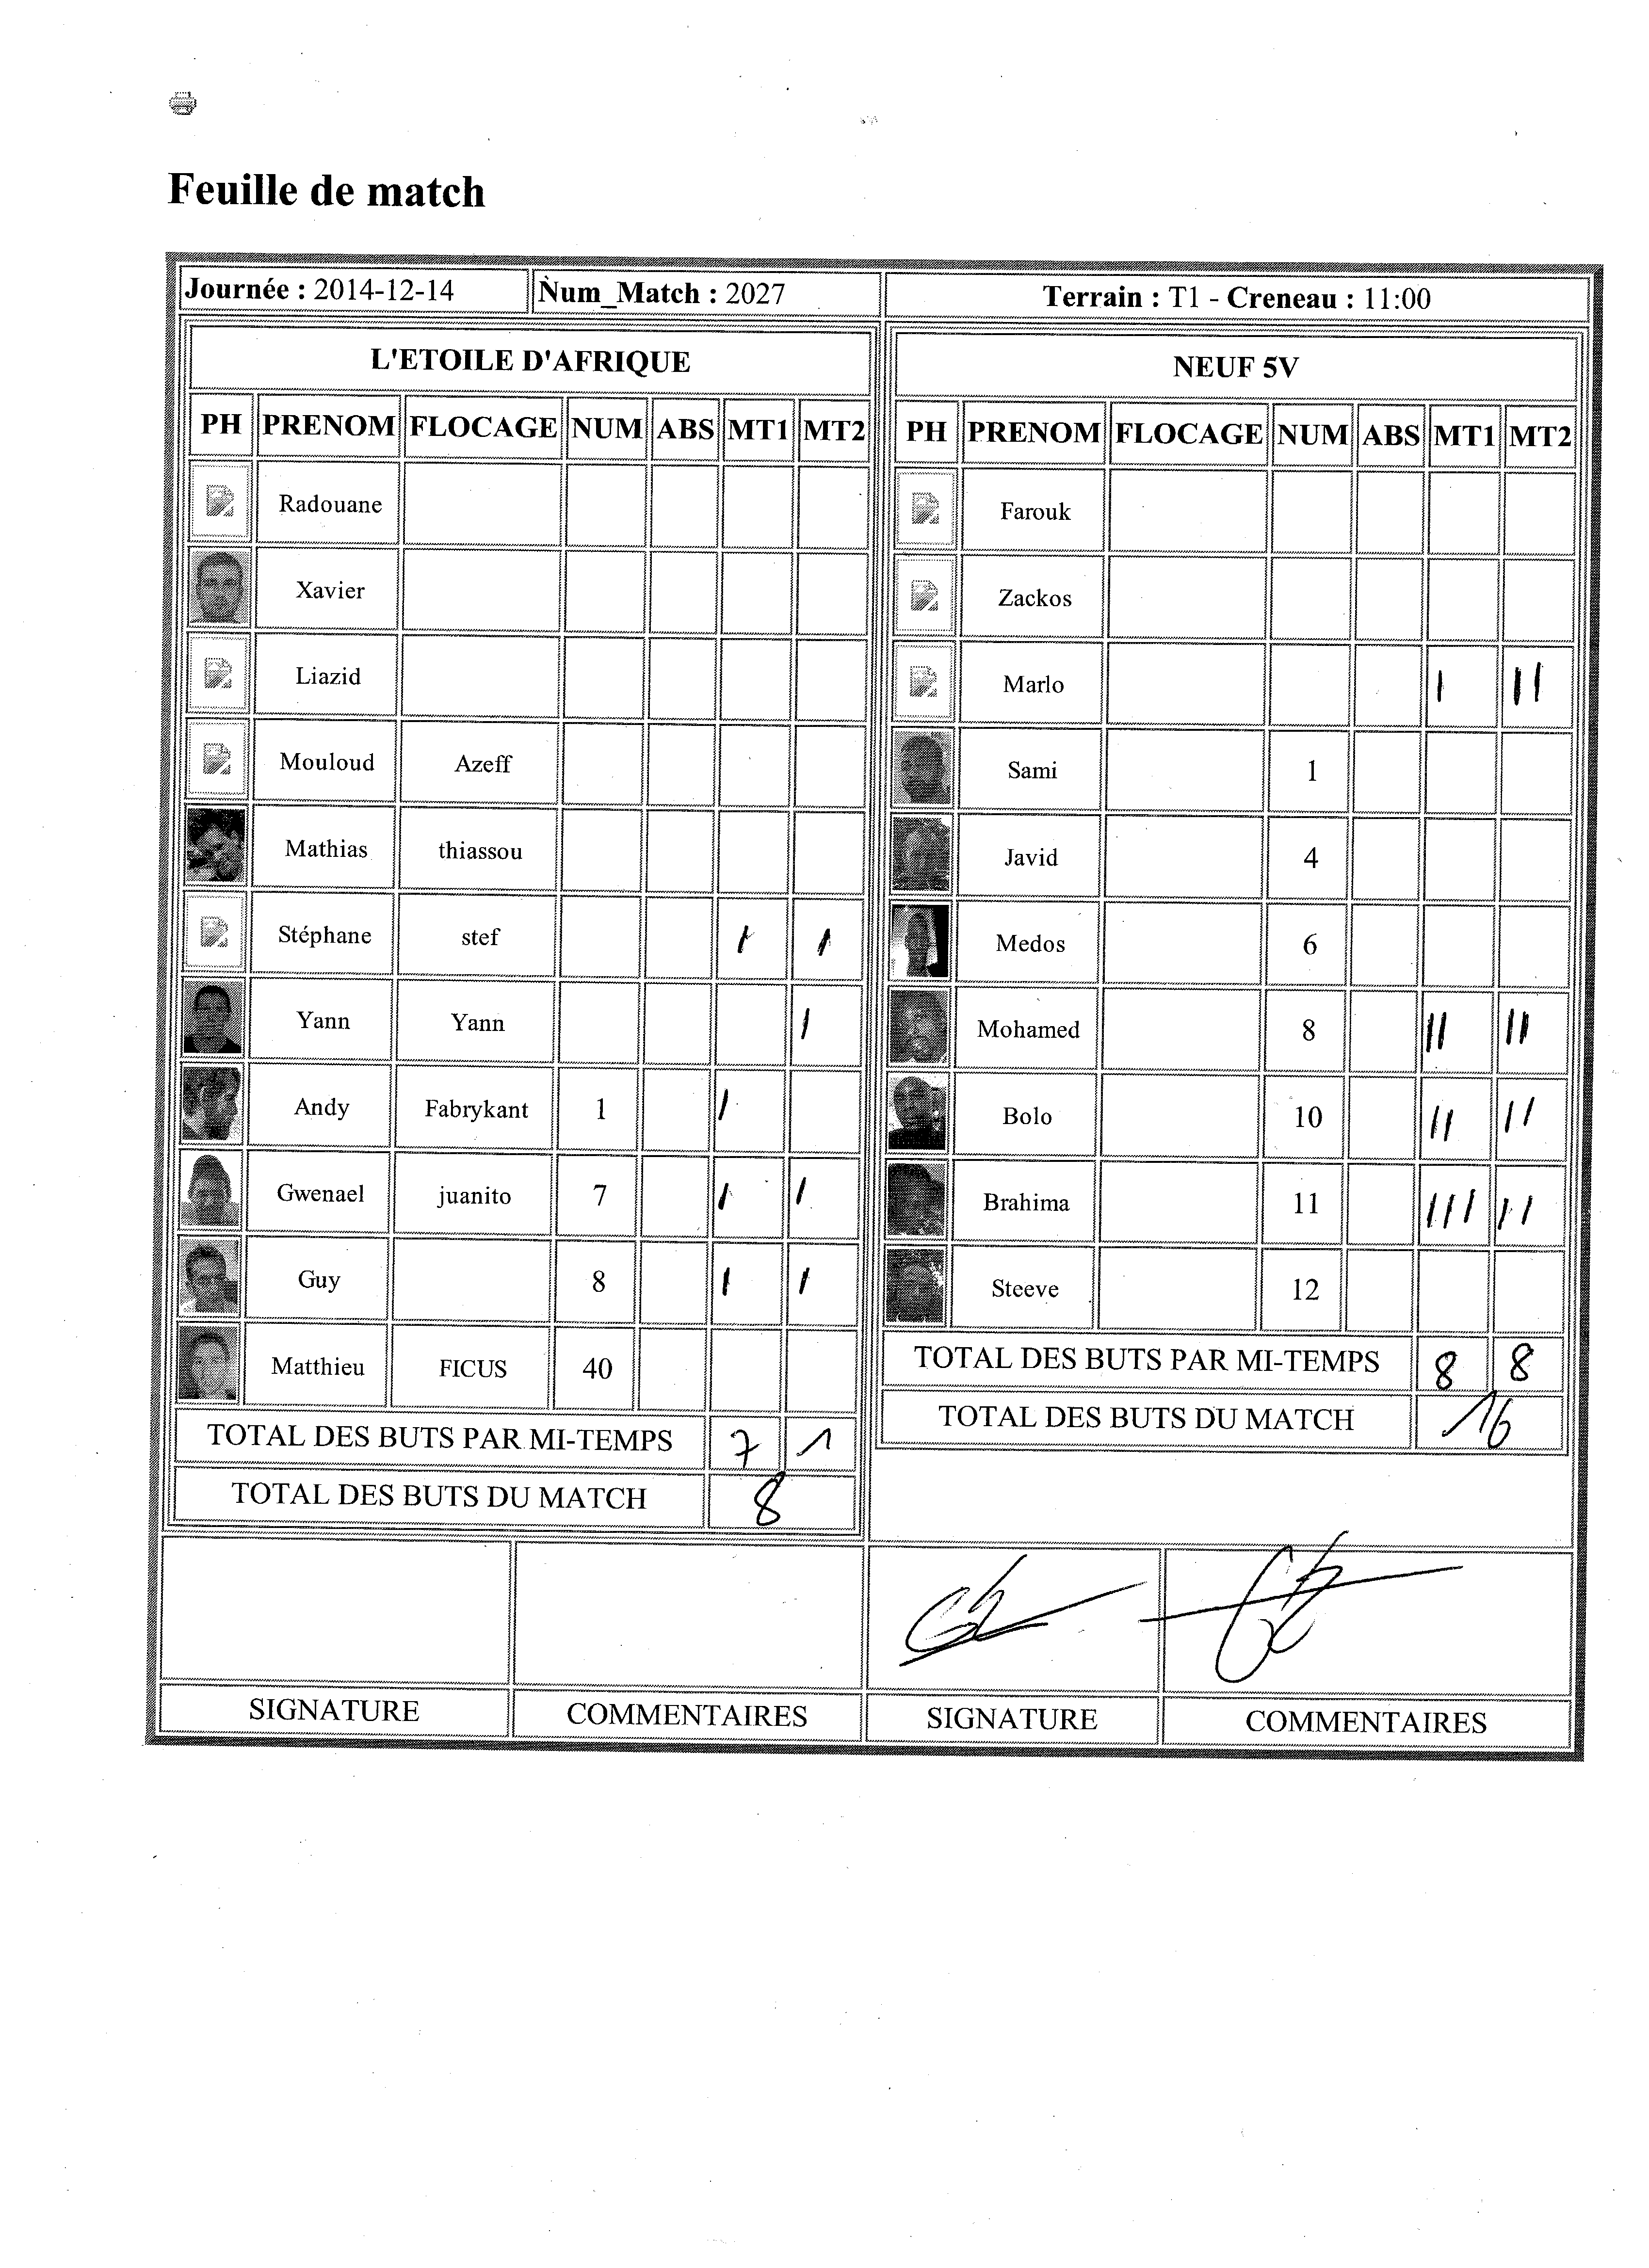 Feuille de match
Journée : 2014-12-14 Num_Match : 2027 Terrain : T1 - Creneau : 11:00
L'ETOILE D'AFRIQUE
PH PRENOM FLOCAGE NUM ABS MT1 MT2
Radouane
Xavier
Liazid
Mouloud Azeff
Mathias thiassou
Stéphane stef I I
Yann Yann I
Andy Fabrykant 1 I
Gwenael juanito 7 I I
Guy 8 I I
Matthieu FICUS 40
TOTAL DES BUTS PAR MI-TEMPS 7 1
TOTAL DES BUTS DU MATCH 8
NEUF 5V
PH PRENOM FLOCAGE NUM ABS MT1 MT2
Farouk
Zackos
Marlo I II
Sami 1
Javid 4
Medos 6
Mohamed 8 II II
Bolo 10 II II
Brahima 11 III II
Steeve 12
TOTAL DES BUTS PAR MI-TEMPS 8 8
TOTAL DES BUTS DU MATCH 16
SIGNATURE COMMENTAIRES SIGNATURE COMMENTAIRES